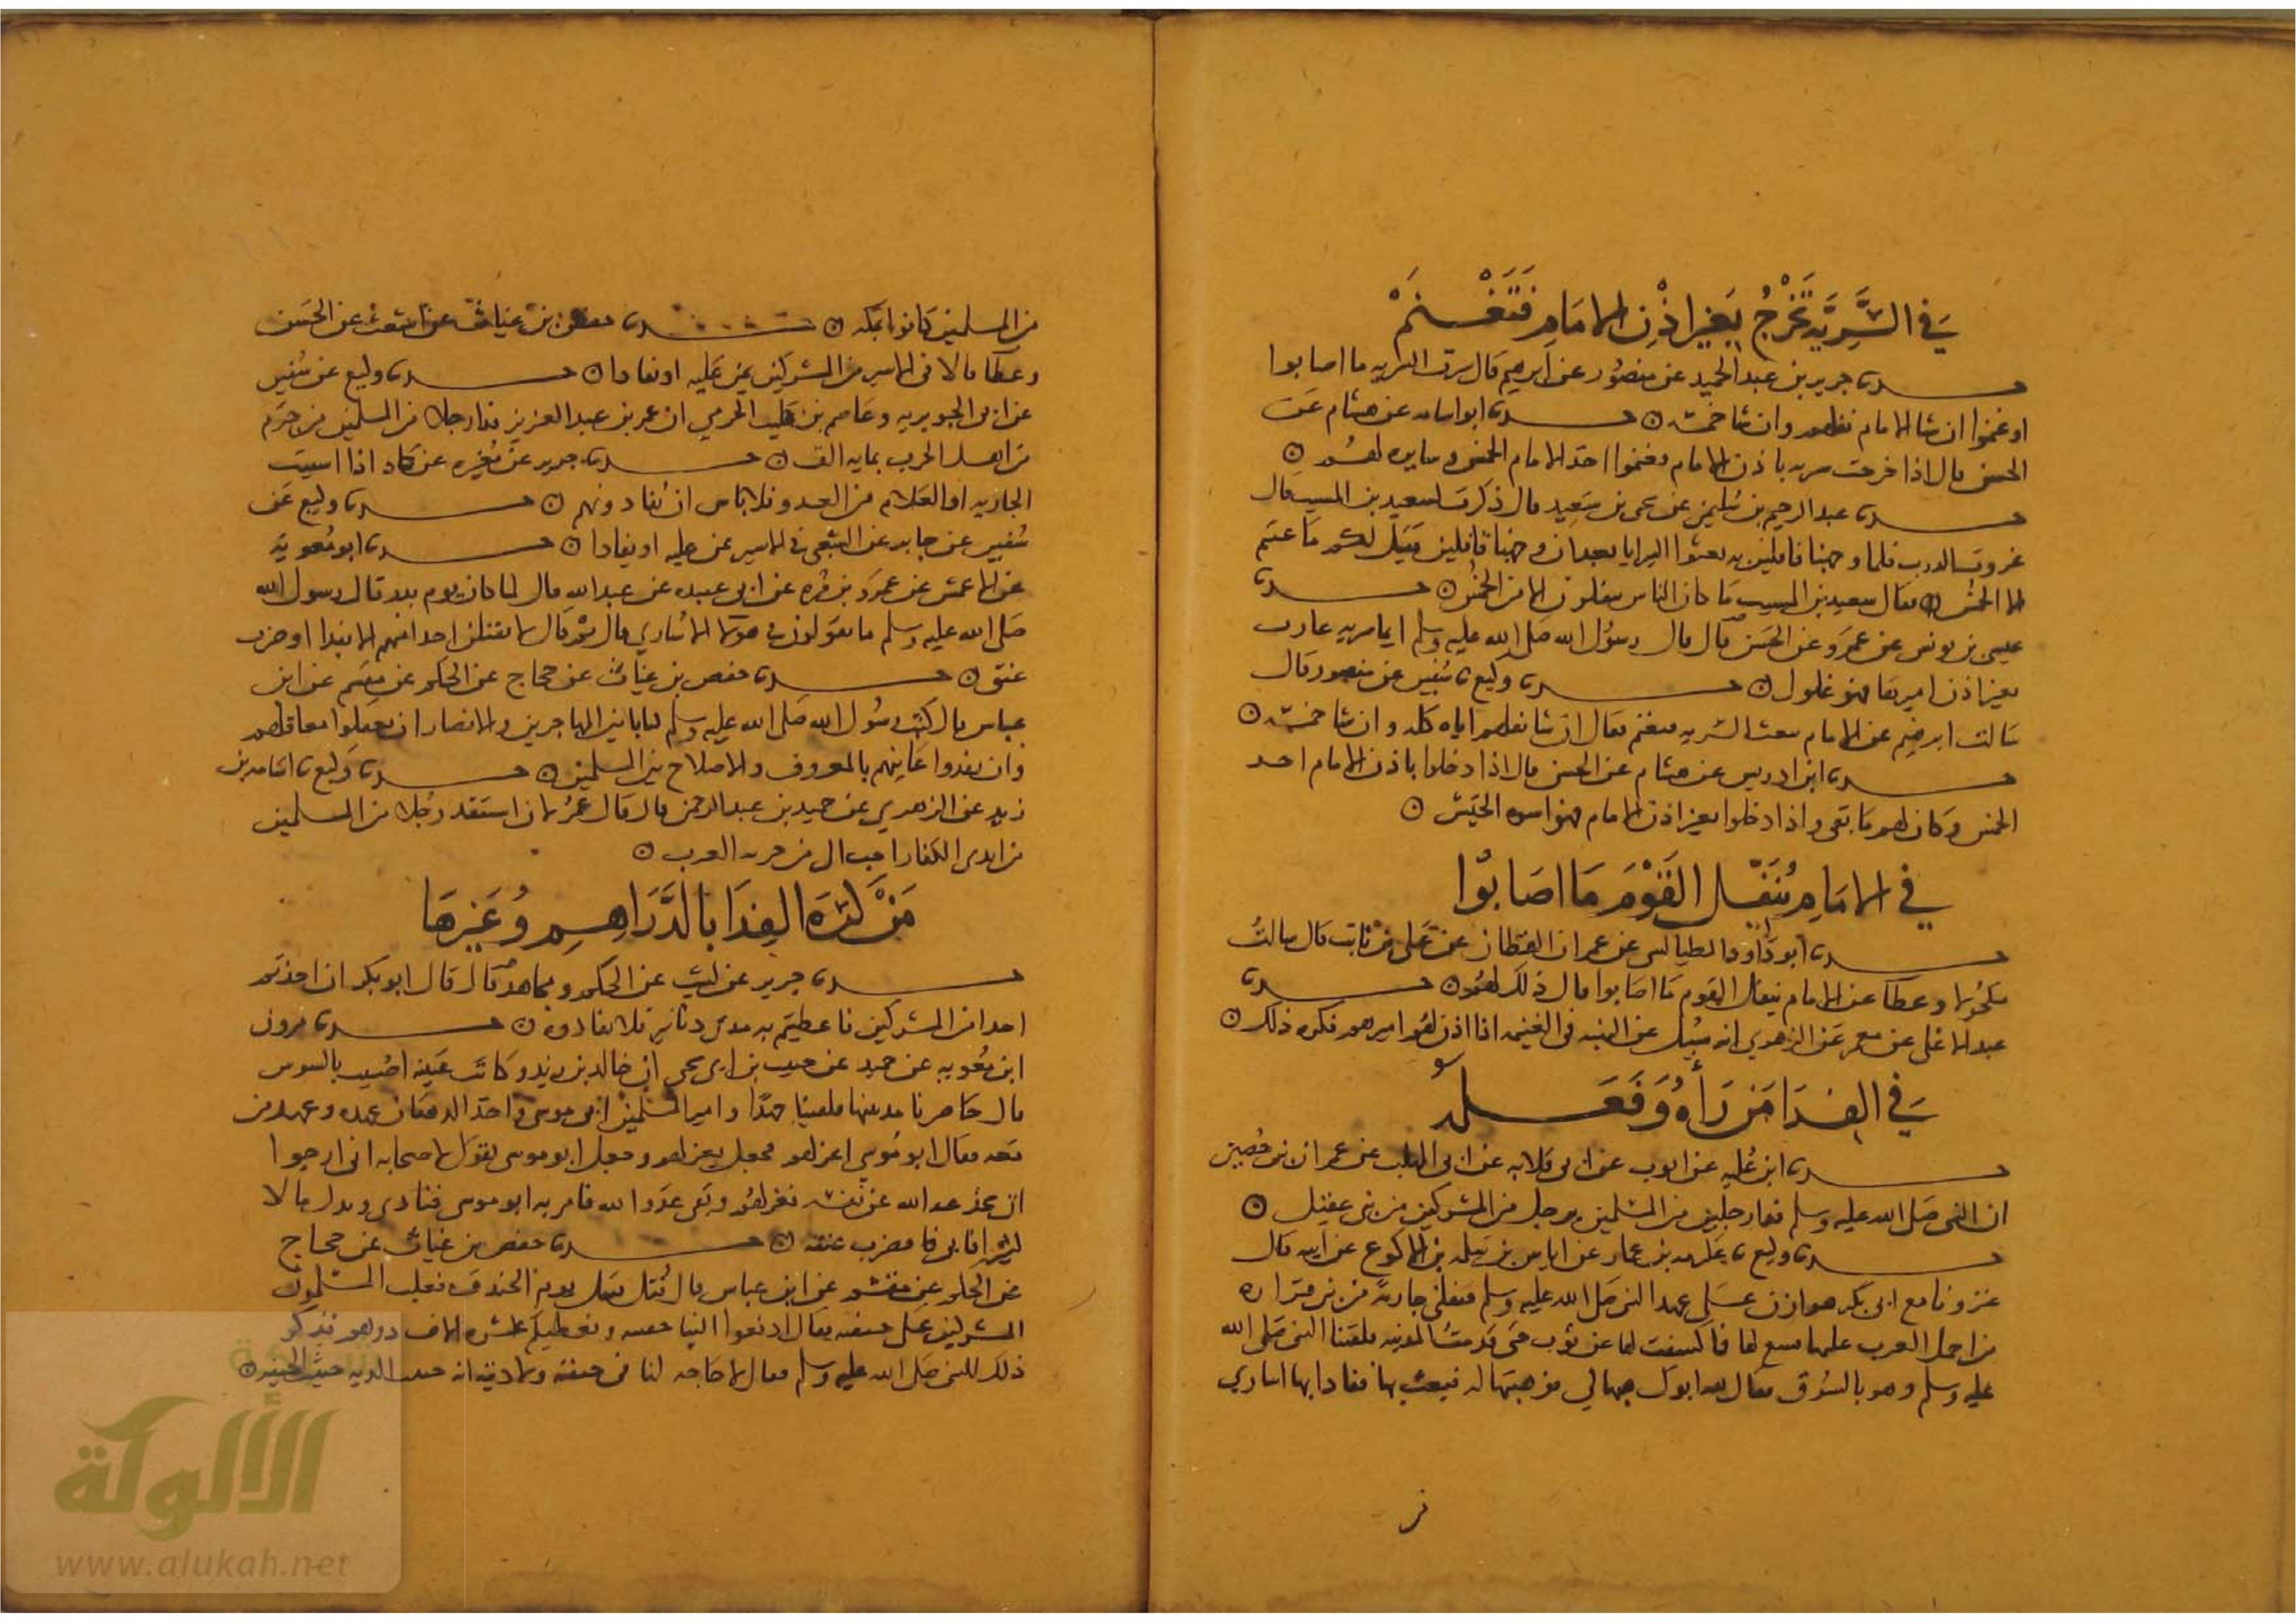 في السَّرِيَّة تَخْرُجُ بِغَيْرِ اذْنِ الامَامِ فَتَغْنَمْ
حدثنا جرير بن عبد الحميد عن منصور عن ابرهيم قال سرت السريه ما اصابوا
او غنموا ان شا الامام نفلهم وان شا خمسه ⊙ حدثنا ابو اسامه عن هشام عن
الحسن قال اذا خرجت سريه باذن الامام فغنموا اخذ الامام الخمس وسايره لهم ⊙
حدثنا عبد الرحيم بن سليمن عن يحيى بن سعيد قال ذكرت لسعيد بن المسيب قال
غزوت الدرب فلما وجهنا قافلين به بعثوا السرايا بعد ان وجهنا قافلين فقيل لكم ما غنمتم
الا الخمس ⊙ فقال سعيد بن المسيب ما كان الناس ينفلون الا من الخمس ⊙ حدثنا
عيسى بن يونس عن عمرو عن الحسن قال قال رسول الله صلى الله عليه وسلم ايما سريه غارت
بغير اذن اميرها فهو غلول ⊙ حدثنا وكيع نا سفين عن منصور قال
سالت ابرهيم عن الامام يبعث السريه فتغنم فقال ان شا نفلهم اياه كله وان شا خمسه ⊙
حدثنا ابن ادريس عن هشام عن الحسن قال اذا دخلوا باذن الامام اخذ
الخمس وكان لهم ما بقي واذا دخلوا بغير اذن الامام فهو اسوه الجيش ⊙
في الامَامِ يُنَفِّل القَوْمَ مَا اصَابُوْا
حدثنا ابو داود الطيالسي عن عمران القطان عن علي بن ثابت قال سالت
مكحولا وعطا عن الامام ينفل القوم ما اصابوا قال ذلك لهم ⊙ حدثنا
عبد الاعلى عن معمر عن الزهري انه سيل عن النهبه في الغنيمه اذا اذن لهم اميرهم فكره ذلك ⊙
في الفِدَا مَن رَأهُ وَفَعَلهُ
حدثنا ابن عليه عن ايوب عن ابي قلابه عن ابي المهلب عن عمران بن حصين
ان النبي صلى الله عليه وسلم فدا رجلين من المسلمين برجل من المشركين من بني عقيل ⊙
حدثنا وكيع نا عكرمه بن عمار عن اياس بن سلمه بن الاكوع عن ابيه قال
غزونا مع ابي بكر هوازن على عهد النبي صلى الله عليه وسلم فنفلني جاريه من بني فزاره
من اجمل العرب عليها قشع لها فما كشفت لها عن ثوب حتى قدمت المدينه فلقينا النبي صلى الله
عليه وسلم وهو بالسوق فقال لله ابوك هبها لي فوهبتها له فبعث بها ففادا بها اسارى
من المسلمين كانوا بمكه ⊙ حدثنا حفص بن غياث عن اشعث عن الحسن
وعطا قالا في الاسير من المشركين يمن عليه او يفادا ⊙ حدثنا وكيع عن سفين
عن ابي الجويريه وعاصم بن كليب الجرمي ان عمر بن عبد العزيز فدا رجلا من المسلمين من جرم
من اهل الحرب بمايه الف ⊙ حدثنا جرير عن مغيره عن حماد اذا اسبيت
الجاريه او الغلام من العدو فلا باس ان تفادونهم ⊙ حدثنا وكيع عن
سفين عن جابر عن الشعبي في الاسير يمن عليه او يفادا ⊙ حدثنا ابو معويه
عن الاعمش عن عمرو بن مره عن ابي عبيده عن عبد الله قال لما كان يوم بدر قال رسول الله
صلى الله عليه وسلم ما تقولون في هولا الاسارى قال ثم قال لا يفتلن احد منهم الا بفدا او ضرب
عنق ⊙ حدثنا حفص بن غياث عن حجاج عن الحكم عن مقسم عن ابن
عباس قال كتب رسول الله صلى الله عليه وسلم كتابا بين المهاجرين والانصار ان يعقلوا معاقلهم
وان يفدوا عانيهم بالمعروف والاصلاح بين المسلمين ⊙ حدثنا وكيع نا اسامه بن
زيد عن الزهري عن حميد بن عبد الرحمن قال قال عمر لان استنقذ رجلا من المسلمين
من ايدي الكفار احب الي من جزيه العرب ⊙
مَنْ كَرِهَ الفِدَا بالدَّرَاهِمِ وَغَيْرِهَا
حدثنا جرير عن ليث عن الحكم ومجاهد قال قال ابو بكر ان اخذتم
احدا من المشركين فاعطيتم به مدي دنانير فلا تفادوه ⊙ حدثنا مرون
ابن معويه عن حميد عن حبيب بن ابي يحيى ان خالد بن زيد وكانت عينه اصيب بالسوس
قال حاصرنا مدينتها فلقينا جهدا وامير المسلمين ابو موسى واخذ الدهقان عهده وعهد من
معه فقال ابو موسى اعزلهم فجعل يعزلهم وجعل ابو موسى يقول لاصحابه اني ارجوا
ان يخدعه الله عن نفسه فعزلهم وبقي عدو الله فامر به ابو موسى فنادى وبذل مالا
كثيرا فابى فامر فضرب عنقه ⊙ حدثنا حفص بن غياث عن حجاج
عن الحكم عن مقسم عن ابن عباس قال قتل قتيل يوم الخندق فغلب المسلمون
المشركين على جيفته فقال ادفعوا الينا جيفته ونعطيكم عشره الاف درهم فذكر
ذلك للنبي صلى الله عليه وسلم فقال لا حاجه لنا في جيفته ولا ديته انه خبيث الديه خبيث الجيفه ⊙
شبكة
الألوكة
www.alukah.net